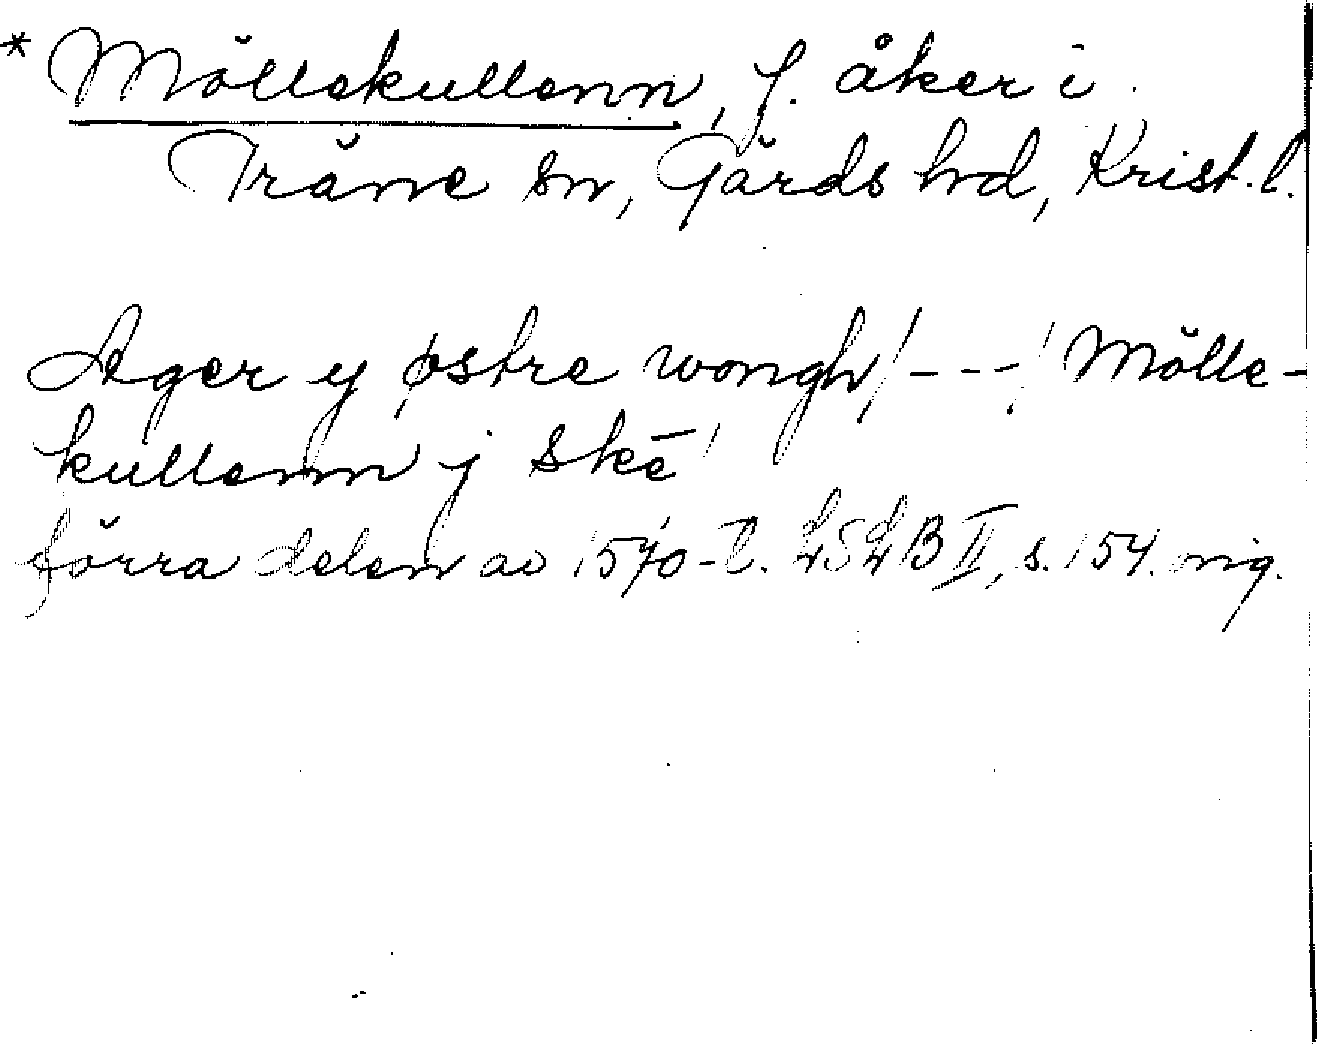 * Möllekullenn, f. åker i
Träne sn, Gärds hd, Krist. l.
Ager y østre wongh /---/ Mölle-
kullenn j skē
förra delen av 1570-t. LSLB II, s. 154. orig.